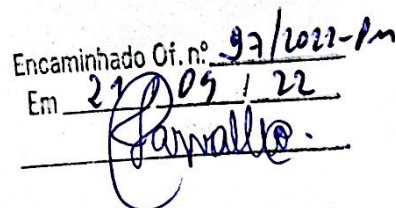 Encaminhado Of. n.º 97/2022-PM
Em 21 / 09 / 22
Carvalho.